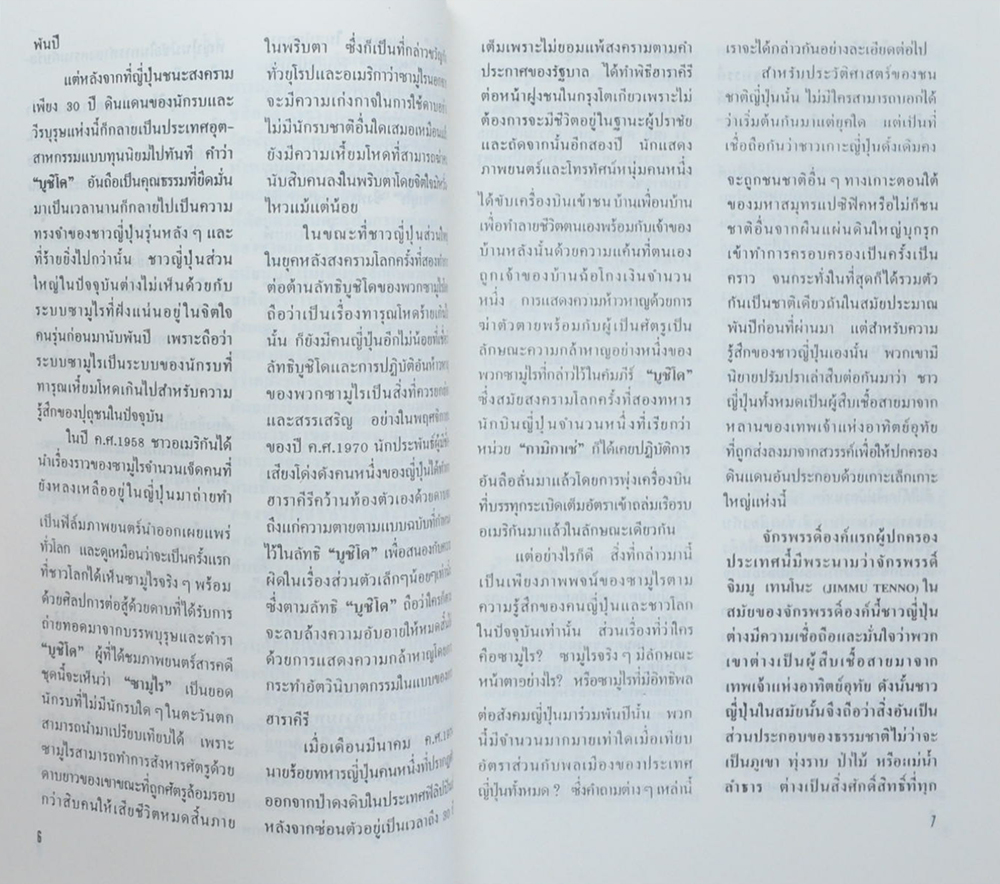 พันปี
แต่หลังจากที่ญี่ปุ่นชนะสงคราม
เพียง 30 ปี ดินแดนของนักรบและ
วีรบุรุษแห่งนี้ก็กลายเป็นประเทศอุต-
สาหกรรมแบบทุนนิยมไปทันที คำว่า
“บูชิโด” อันถือเป็นคุณธรรมที่ยึดมั่น
มาเป็นเวลานานก็กลายไปเป็นความ
ทรงจำของชาวญี่ปุ่นรุ่นหลัง ๆ และ
ที่ร้ายยิ่งไปกว่านั้น ชาวญี่ปุ่นส่วน
ใหญ่ในปัจจุบันต่างไม่เห็นด้วยกับ
ระบบซามูไรที่ฝังแน่นอยู่ในจิตใจ
คนรุ่นก่อนมานับพันปี เพราะถือว่า
ระบบซามูไรเป็นระบบของนักรบที่
ทารุณเหี้ยมโหดเกินไปสำหรับความ
รู้สึกของปุถุชนในปัจจุบัน
ในปี ค.ศ.1958 ชาวอเมริกันได้
นำเรื่องราวของซามูไรจำนวนเจ็ดคนที่
ยังหลงเหลืออยู่ในญี่ปุ่นมาถ่ายทำ
เป็นฟิล์มภาพยนตร์นำออกเผยแพร่
ทั่วโลก และดูเหมือนว่าจะเป็นครั้งแรก
ที่ชาวโลกได้เห็นซามูไรจริง ๆ พร้อม
ด้วยศิลปการต่อสู้ด้วยดาบที่ได้รับการ
ถ่ายทอดมาจากบรรพบุรุษและตำรา
“บูชิโด” ผู้ที่ได้ชมภาพยนตร์สารคดี
ชุดนี้จะเห็นว่า “ซามูไร” เป็นยอด
นักรบที่ไม่มีนักรบใด ๆ ในตะวันตก
สามารถนำมาเปรียบเทียบได้ เพราะ
ซามูไรสามารถทำการสังหารศัตรูด้วย
ดาบยาวของเขาขณะที่ถูกศัตรูล้อมรอบ
กว่าสิบคนให้เสียชีวิตหมดสิ้นภาย
6
ในพริบตา ซึ่งก็เป็นที่กล่าวขวัญกัน
ทั่วยุโรปและอเมริกาว่าซามูไรนอกจาก
จะมีความเก่งกาจในการใช้ดาบอย่าง
ไม่มีนักรบชาติอื่นใดเสมอเหมือนแล้ว
ยังมีความเหี้ยมโหดที่สามารถฆ่าคน
นับสิบคนลงในพริบตาโดยจิตใจมิหวั่น
ไหวแม้แต่น้อย
ในขณะที่ชาวญี่ปุ่นส่วนใหญ่
ในยุคหลังสงครามโลกครั้งที่สอง
ต่อต้านลัทธิบูชิโดของพวกซามูไร
ถือว่าเป็นเรื่องทารุณโหดร้าย
นั้น ก็ยังมีคนญี่ปุ่นอีกไม่น้อยที่
ลัทธิบูชิโดและการปฏิบัติอัน
ของพวกซามูไรเป็นสิ่งที่ควรยกย่อง
และสรรเสริญ อย่างในพฤศจิกายน
ของปี ค.ศ.1970 นักประพันธ์ผู้มีชื่อ
เสียงโด่งดังคนหนึ่งของญี่ปุ่นได้ทำ
ฮาราคีรีคว้านท้องตัวเองด้วยดาบ
ถึงแก่ความตายตามแบบฉบับที่
ไว้ในลัทธิ “บูชิโด” เพื่อสนอง
ผิดในเรื่องส่วนตัวเล็กๆน้อยๆเท่านั้น
ซึ่งตามลัทธิ “บูชิโด” ถือว่าใคร
จะลบล้างความอับอายให้หมดสิ้นไป
ด้วยการแสดงความกล้าหาญโดย
กระทำอัตวินิบาตกรรมในแบบของ
ฮาราคีรี
เมื่อเดือนมีนาคม ค.ศ.
นายร้อยทหารญี่ปุ่นคนหนึ่งที่
ออกจากป่าดงดิบในประเทศฟิลิปปินส์
หลังจากซ่อนตัวอยู่เป็นเวลาถึง 30 ปี
เต็มเพราะไม่ยอมแพ้สงครามตามคำ
ประกาศของรัฐบาล ได้ทำพิธีฮาราคีรี
ต่อหน้าฝูงชนในกรุงโตเกียวเพราะไม่
ต้องการจะมีชีวิตอยู่ในฐานะผู้ปราชัย
และถัดจากนั้นอีกสองปี นักแสดง
ภาพยนตร์และโทรทัศน์หนุ่มคนหนึ่ง
ได้ขับเครื่องบินเข้าชน บ้านเพื่อนบ้าน
เพื่อทำลายชีวิตตนเองพร้อมกับเจ้าของ
บ้านหลังนั้นด้วยความแค้นที่ตนเอง
ถูกเจ้าของบ้านฉ้อโกงเงินจำนวน
หนึ่ง การแสดงความห้าวหาญด้วยการ
ฆ่าตัวตายพร้อมกับผู้เป็นศัตรูเป็น
ลักษณะความกล้าหาญอย่างหนึ่งของ
พวกซามูไรที่กล่าวไว้ในคัมภีร์ “บูชิโด”
ซึ่งสมัยสงครามโลกครั้งที่สองทหาร
นักบินญี่ปุ่นจำนวนหนึ่งที่เรียกว่า
หน่วย “กามิกาเซ่” ก็ได้เคยปฏิบัติการ
อันลือลั่นมาแล้วโดยการพุ่งเครื่องบิน
ที่บรรทุกระเบิดเต็มอัตราเข้าถล่มเรือรบ
อเมริกันมาแล้วในลักษณะเดียวกัน
แต่อย่างไรก็ดี สิ่งที่กล่าวมานี้
เป็นเพียงภาพพจน์ของซามูไรตาม
ความรู้สึกของคนญี่ปุ่นและชาวโลก
ในปัจจุบันเท่านั้น ส่วนเรื่องที่ว่าใคร
คือซามูไร? ซามูไรจริง ๆ มีลักษณะ
หน้าตาอย่างไร? หรือซามูไรที่มีอิทธิพล
ต่อสังคมญี่ปุ่นมาร่วมพันปีนั้น พวก
นี้มีจำนวนมากมายเท่าใดเมื่อเทียบ
อัตราส่วนกับพลเมืองของประเทศ
ญี่ปุ่นทั้งหมด? ซึ่งคำถามต่าง ๆ เหล่านี้
เราจะได้กล่าวกันอย่างละเอียดต่อไป
สำหรับประวัติศาสตร์ของชน
ชาติญี่ปุ่นนั้น ไม่มีใครสามารถบอกได้
ว่าเริ่มต้นกันมาแต่ยุคใด แต่เป็นที่
เชื่อถือกันว่าชาวเกาะญี่ปุ่นดั้งเดิมคง
จะถูกชนชาติอื่น ๆ ทางเกาะตอนใต้
ของมหาสมุทรแปซิฟิคหรือไม่ก็ชน
ชาติอื่นจากผืนแผ่นดินใหญ่บุกรุก
เข้าทำการครอบครองเป็นครั้งเป็น
คราว จนกระทั่งในที่สุดก็ได้รวมตัว
กันเป็นชาติเดียวกันในสมัยประมาณ
พันปีก่อนที่ผ่านมา แต่สำหรับความ
รู้สึกของชาวญี่ปุ่นเองนั้น พวกเขามี
นิยายปรัมปราเล่าสืบต่อกันมาว่า ชาว
ญี่ปุ่นทั้งหมดเป็นผู้สืบเชื้อสายมาจาก
หลานของเทพเจ้าแห่งอาทิตย์อุทัย
ที่ถูกส่งลงมาจากสวรรค์เพื่อให้ปกครอง
ดินแดนอันประกอบด้วยเกาะเล็กเกาะ
ใหญ่แห่งนี้
จักรพรรดิ์องค์แรกผู้ปกครอง
ประเทศนี้มีพระนามว่าจักรพรรดิ์
จิมมู เทนโนะ (JIMMU TENNO) ใน
สมัยของจักรพรรดิ์องค์นี้ชาวญี่ปุ่น
ต่างมีความเชื่อถือและมั่นใจว่าพวก
เขาต่างเป็นผู้สืบเชื้อสายมาจาก
เทพเจ้าแห่งอาทิตย์อุทัย ดังนั้นชาว
ญี่ปุ่นในสมัยนั้นจึงถือว่าสิ่งอันเป็น
ส่วนประกอบของธรรมชาติไม่ว่าจะ
เป็นภูเขา ทุ่งราบ ป่าไม้ หรือแม่น้ำ
ลำธาร ต่างเป็นสิ่งศักดิ์สิทธิ์ที่ทุก
7